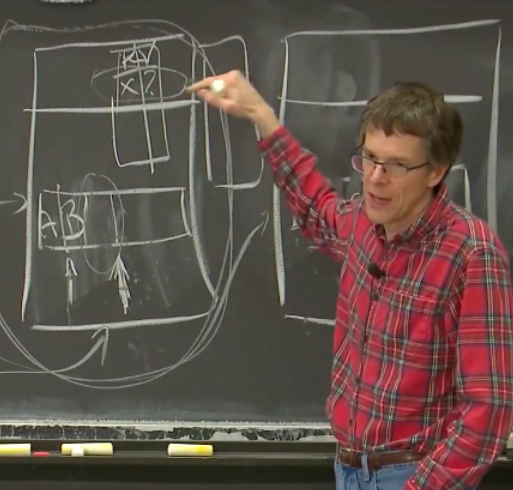 K V
X ?
A B